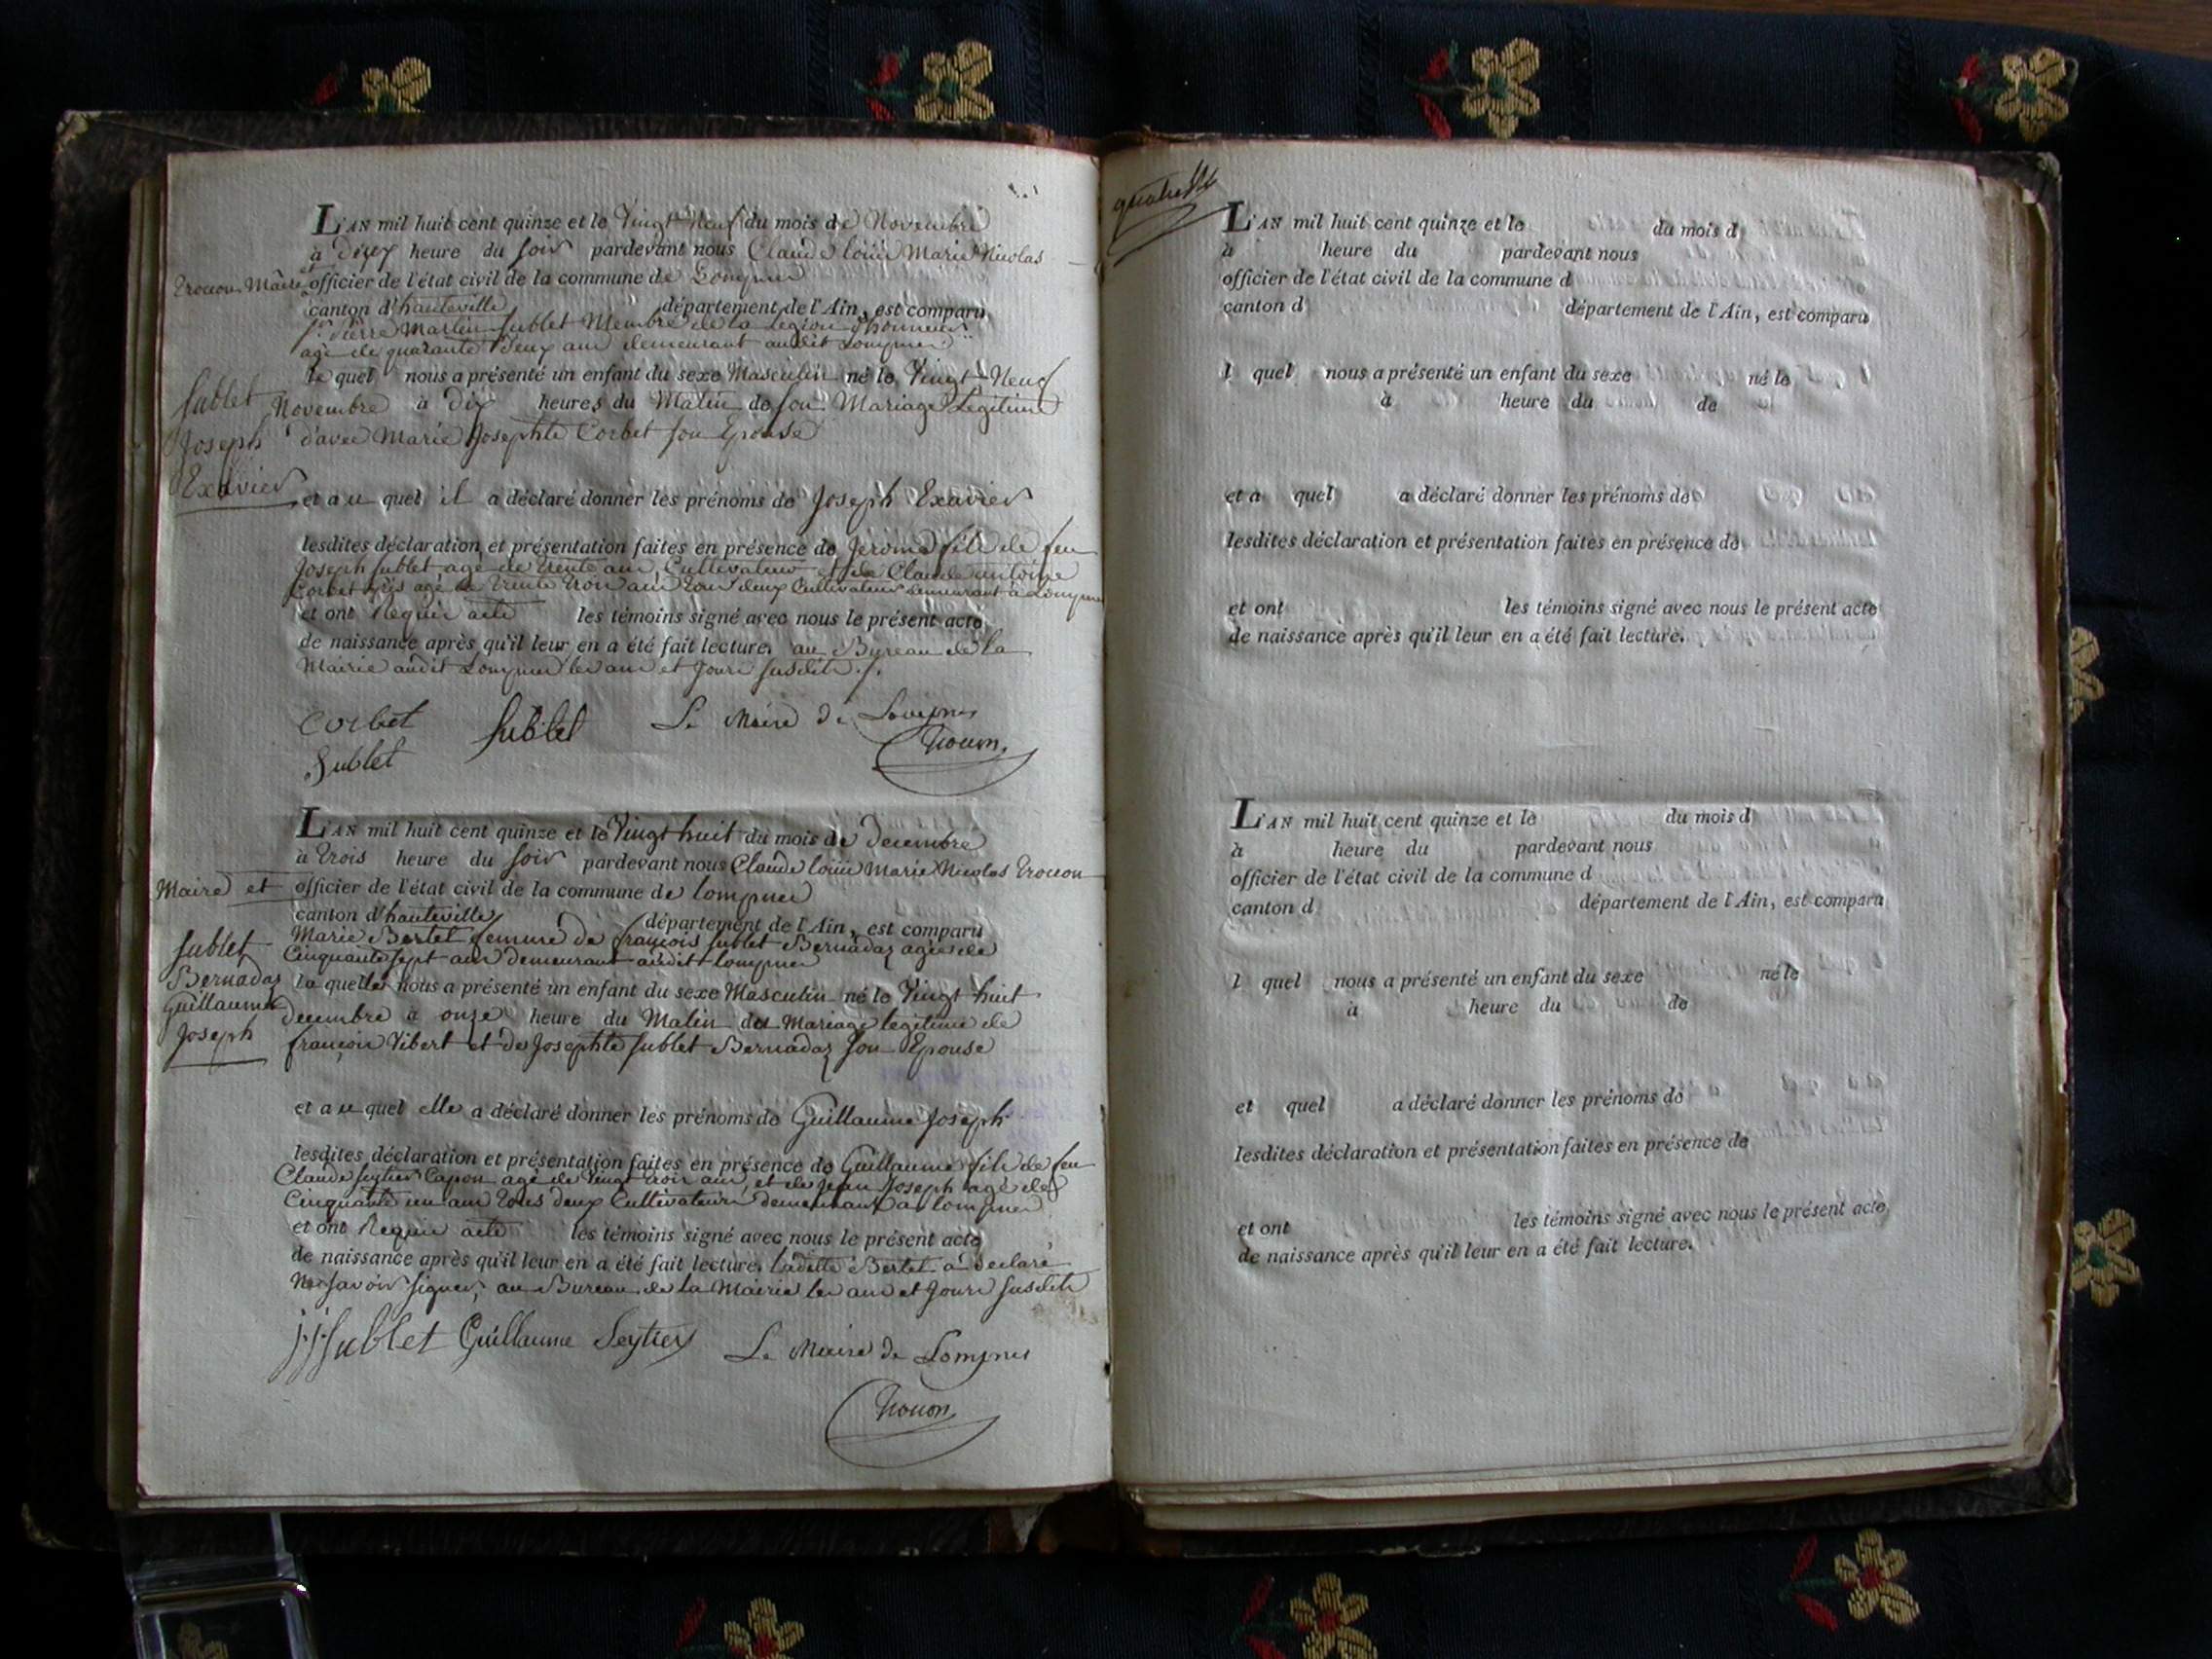 L'AN mil huit cent quinze et le Vingt Neuf du mois de Novembre
à Dix heure du soir pardevant nous Claude Marie Nicolas
Maire et officier de l'état civil de la commune de Lompnes
canton d'hauteville département de l'Ain, est comparu
Sr. Pierre Martin Sublet Membre de la Legion d'honneur
agé de quarante Deux ans demeurant audit Lompnes
le quel nous a présenté un enfant du sexe Masculin né le Vingt-Neuf
Sublet
Novembre à Dix heures du Matin de son Mariage Legitime
Joseph
d'avec Marie Josephte Corbet son Epouse
Exavier
et a u quel il a déclaré donner les prénoms de Joseph Exavier
lesdites déclaration et présentation faites en présence de Jerome fils de feu
Joseph Sublet agé de trente ans, Cultivateur et de Claude antoine
Corbet agé de trente trois ans tous deux Cultivateurs demeurant à Lompnes
et ont Requis acte les témoins signé avec nous le présent acte
de naissance après qu'il leur en a été fait lecture. au Bureau de la
Mairie audit Lompnes les an et Jour susdits ./.
Corbet Sublet Le Maire de Lompnes
Sublet
L'AN mil huit cent quinze et le Vingt huit du mois de Decembre
à trois heure du soir pardevant nous Claude Marie Nicolas
Maire et officier de l'état civil de la commune de Lompnes
canton d'hauteville département de l'Ain, est comparu
Marie Bertet femme de françois Sublet Bernadaz agée de
Cinquante sept ans demeurant audit Lompnes
Sublet
Bernadaz
la quelle nous a présenté un enfant du sexe Masculin né le Vingt huit
Guillaume
decembre à onze heure du Matin du Mariage legitime de
Joseph
françois Vibert et de Josephte Sublet Bernadaz son Epouse
et a u quel elle a déclaré donner les prénoms de Guillaume Joseph
lesdites déclaration et présentation faites en présence de Guillaume fils de feu
Claude Seytier Capon agé de Vingt trois ans, et de Jean Joseph agé de
Cinquante un ans tous deux Cultivateurs demeurant à Lompnes
et ont Requis acte les témoins signé avec nous le présent acte
de naissance après qu'il leur en a été fait lecture. ladite Bertet a déclaré
Ne savoir signer, au Bureau de la Mairie les an et Jour susdits
j.j. Sublet Guillaume Seytier Le Maire de Lompnes
L'AN mil huit cent quinze et le du mois d
à heure du pardevant nous
officier de l'état civil de la commune d
canton d département de l'Ain, est comparu
l quel nous a présenté un enfant du sexe né le
à heure du de
et a quel a déclaré donner les prénoms de
lesdites déclaration et présentation faites en présence de
et ont les témoins signé avec nous le présent acte
de naissance après qu'il leur en a été fait lecture.
L'AN mil huit cent quinze et le du mois d
à heure du pardevant nous
officier de l'état civil de la commune d
canton d département de l'Ain, est comparu
l quel nous a présenté un enfant du sexe né le
à heure du de
et quel a déclaré donner les prénoms de
lesdites déclaration et présentation faites en présence de
et ont les témoins signé avec nous le présent acte
de naissance après qu'il leur en a été fait lecture.